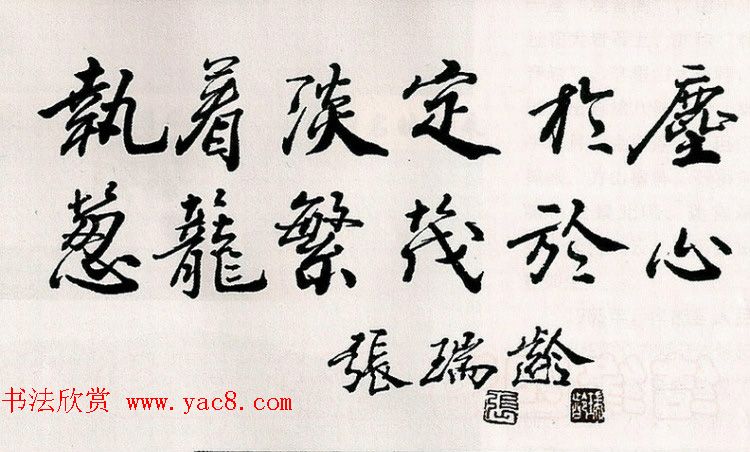 執着淡定於塵
葱龍繁茂於心
張瑞齡
張
瑞齡
书法欣赏 www.yac8.com